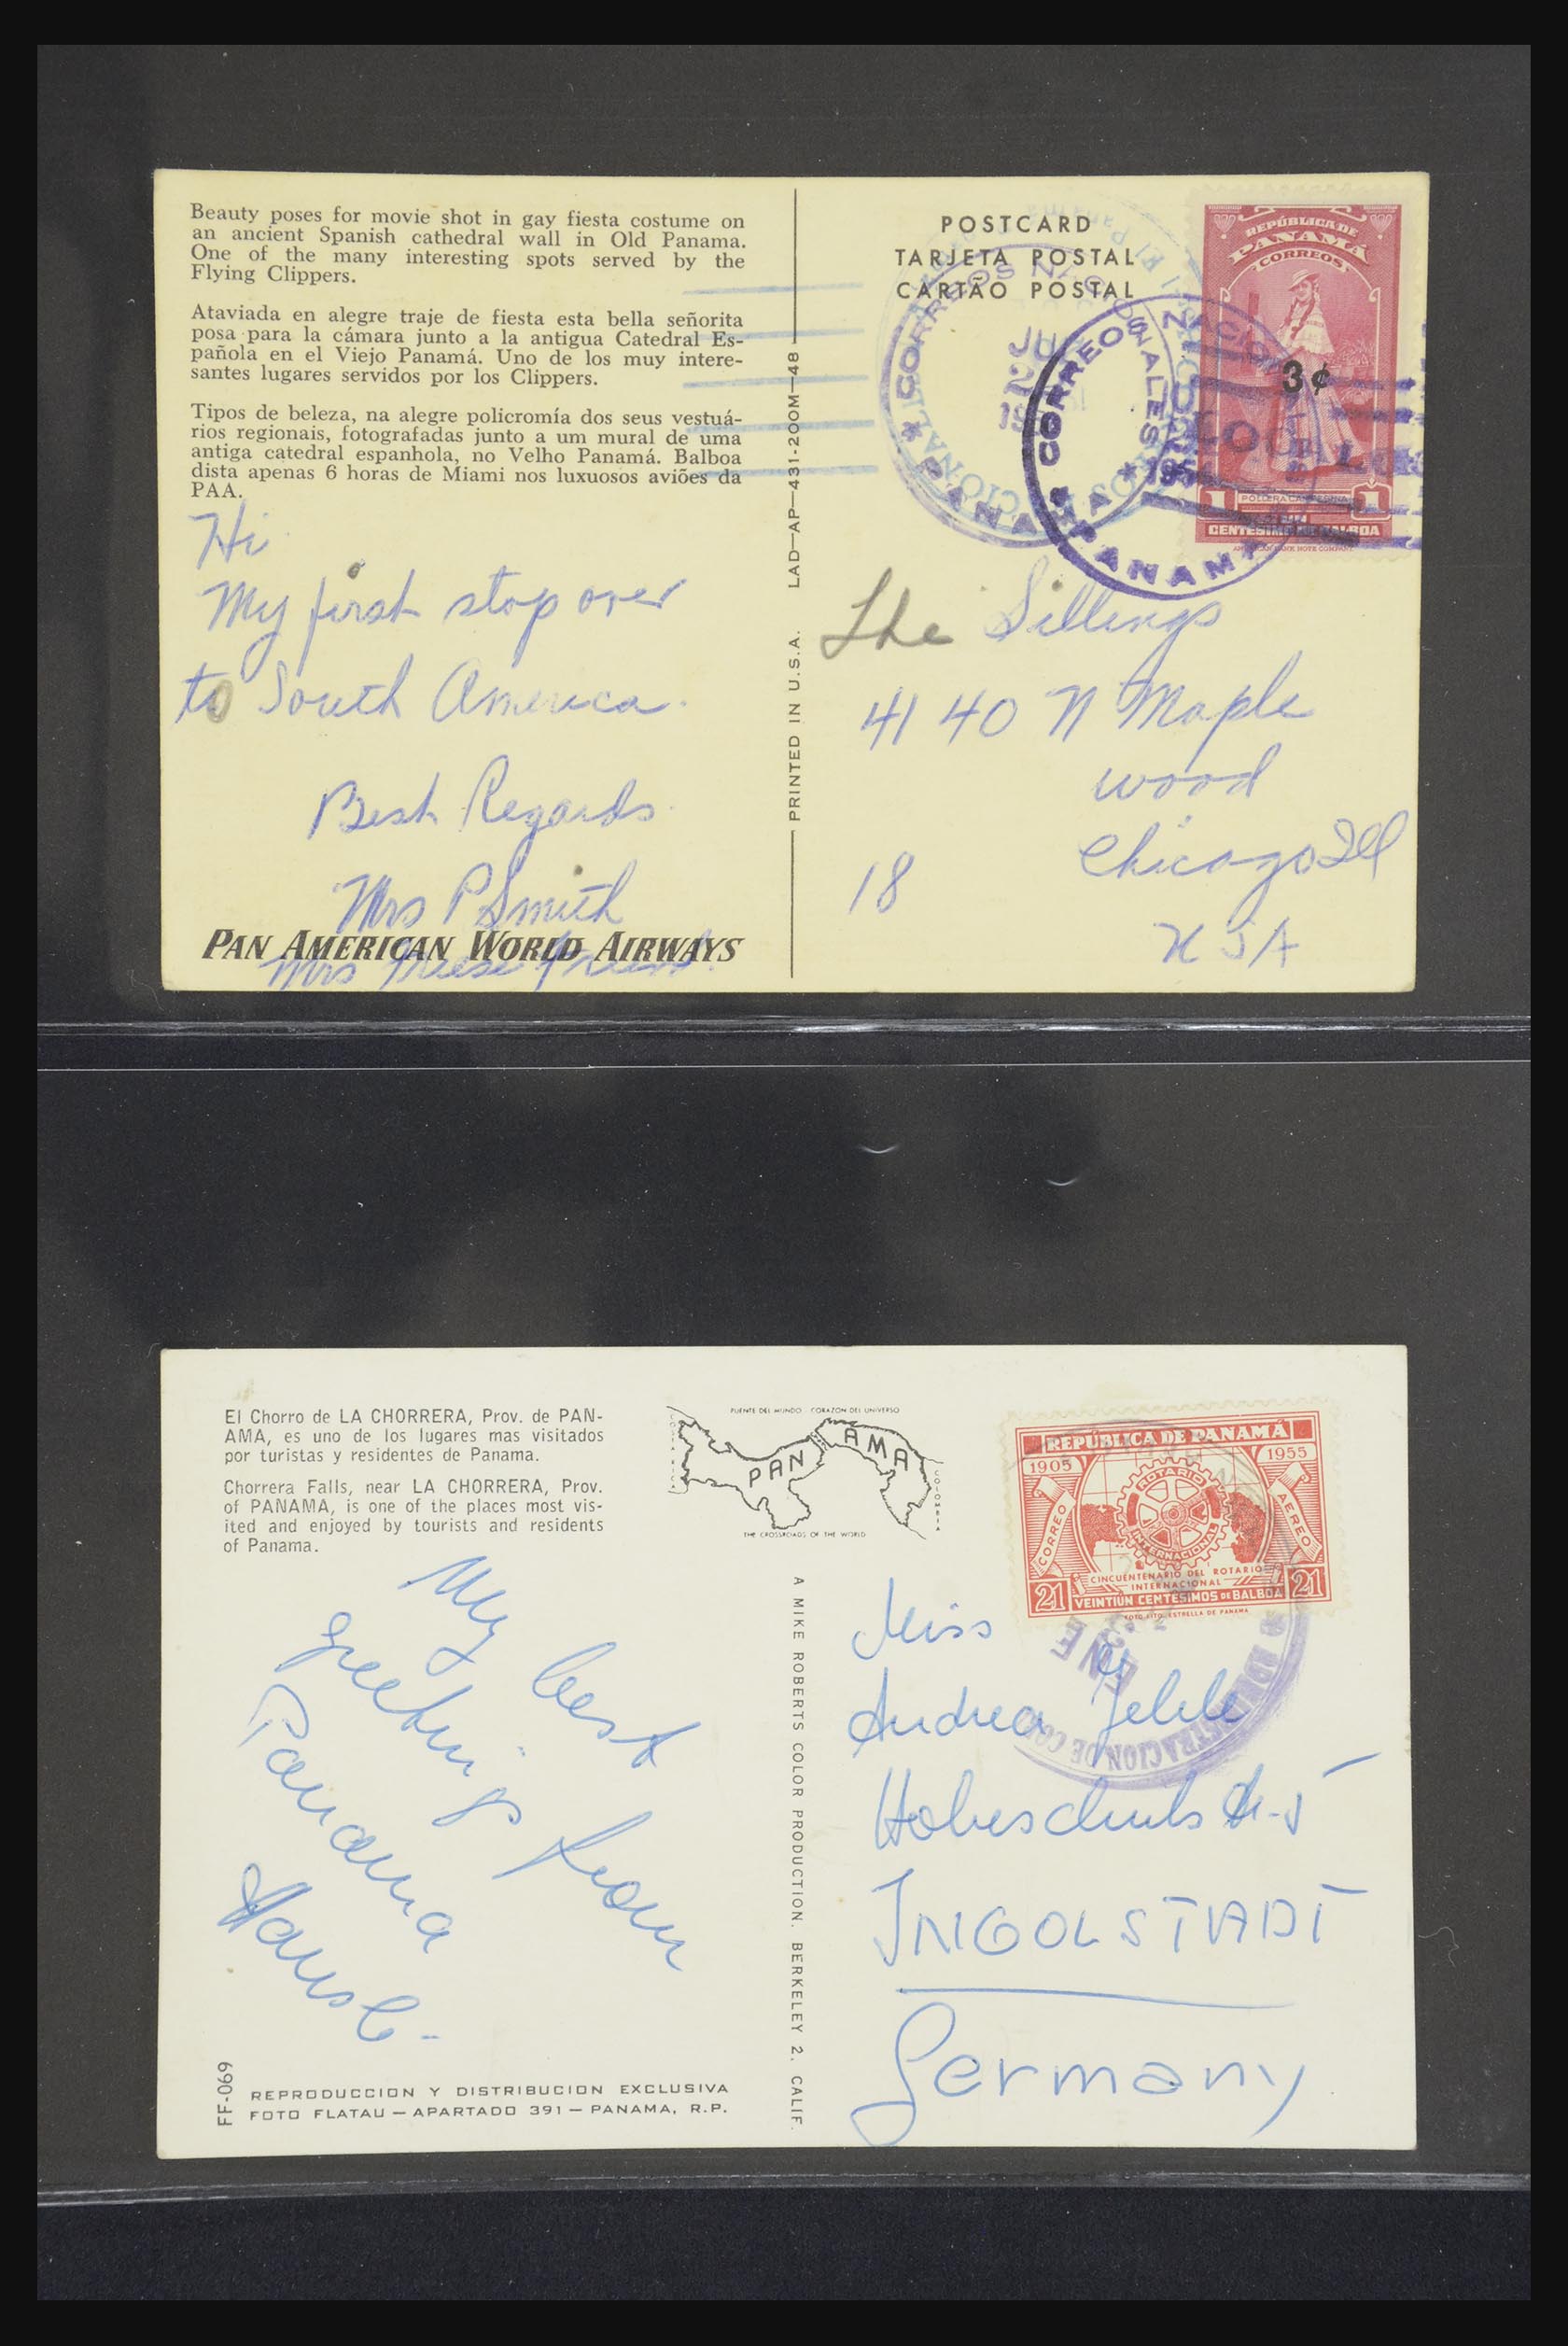 Beauty poses for movie shot in gay fiesta costume on
an ancient Spanish cathedral wall in Old Panama.
One of the many interesting spots served by the
Flying Clippers.
Ataviada en alegre traje de fiesta esta bella señorita
posa para la cámara junto a la antigua Catedral Es-
pañola en el Viejo Panamá. Uno de los muy intere-
santes lugares servidos por los Clippers.
Tipos de beleza, na alegre policromía dos seus vestuá-
rios regionais, fotografadas junto a um mural de uma
antiga catedral espanhola, no Velho Panamá. Balboa
dista apenas 6 horas de Miami nos luxuosos aviões da
PAA.
Hi
My first stop over
to South America.
Best Regards
Mrs P Smith
PAN AMERICAN WORLD AIRWAYS
Mrs
PRINTED IN U.S.A. LAD—AP—431-200M—48
POSTCARD
TARJETA POSTAL
CARTÃO POSTAL
CORREOS NACIONALES
PANAMA
JU
CORREOS NACIONALES
PANAMA
REPÚBLICA DE
PANAMÁ
CORREOS
3¢
1 POLLERA CAMPESINA 1
UN
CENTESIMO DE BALBOA
AMERICAN BANK NOTE COMPANY
The Sillings
4140 N Maple
wood
Chicago Ill
18
USA
El Chorro de LA CHORRERA, Prov. de PAN-
AMA, es uno de los lugares mas visitados
por turistas y residentes de Panama.
Chorrera Falls, near LA CHORRERA, Prov.
of PANAMA, is one of the places most vis-
ited and enjoyed by tourists and residents
of Panama.
PUENTE DEL MUNDO CORAZON DEL UNIVERSO
COSTA RICA
PAN AMA
COLOMBIA
THE CROSSROADS OF THE WORLD
My best
greetings from
Panama
FF-069
REPRODUCCION Y DISTRIBUCION EXCLUSIVA
FOTO FLATAU — APARTADO 391 — PANAMA, R.P.
A MIKE ROBERTS COLOR PRODUCTION. BERKELEY 2, CALIF.
REPÚBLICA DE PANAMÁ
1905 1955
CORREO AEREO
ROTARIO
INTERNACIONAL
CINCUENTENARIO DEL ROTARIO
INTERNACIONAL
21 VEINTIÚN CENTESIMOS DE BALBOA 21
FOTO LITO. ESTRELLA DE PANAMA
ENE
ADMINISTRACION DE
Miss
Andrea
INGOLSTADT
Germany